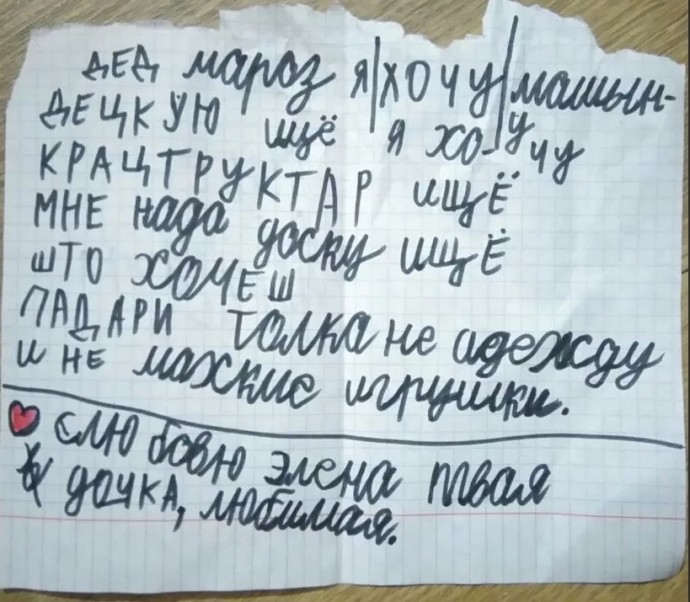 ДЕД мароз я хочу машын-
ДЕЦКУЮ ищё я хо- у чу
КРАЦТРУКТАР ИЩЁ
МНЕ нада доску ИЩЁ
ШТО ХОЧЕШ
ПАДАРИ толка не адежду
и НЕ махкие игрушки.
С лЮ бовю элена твая
дочка, любимая.